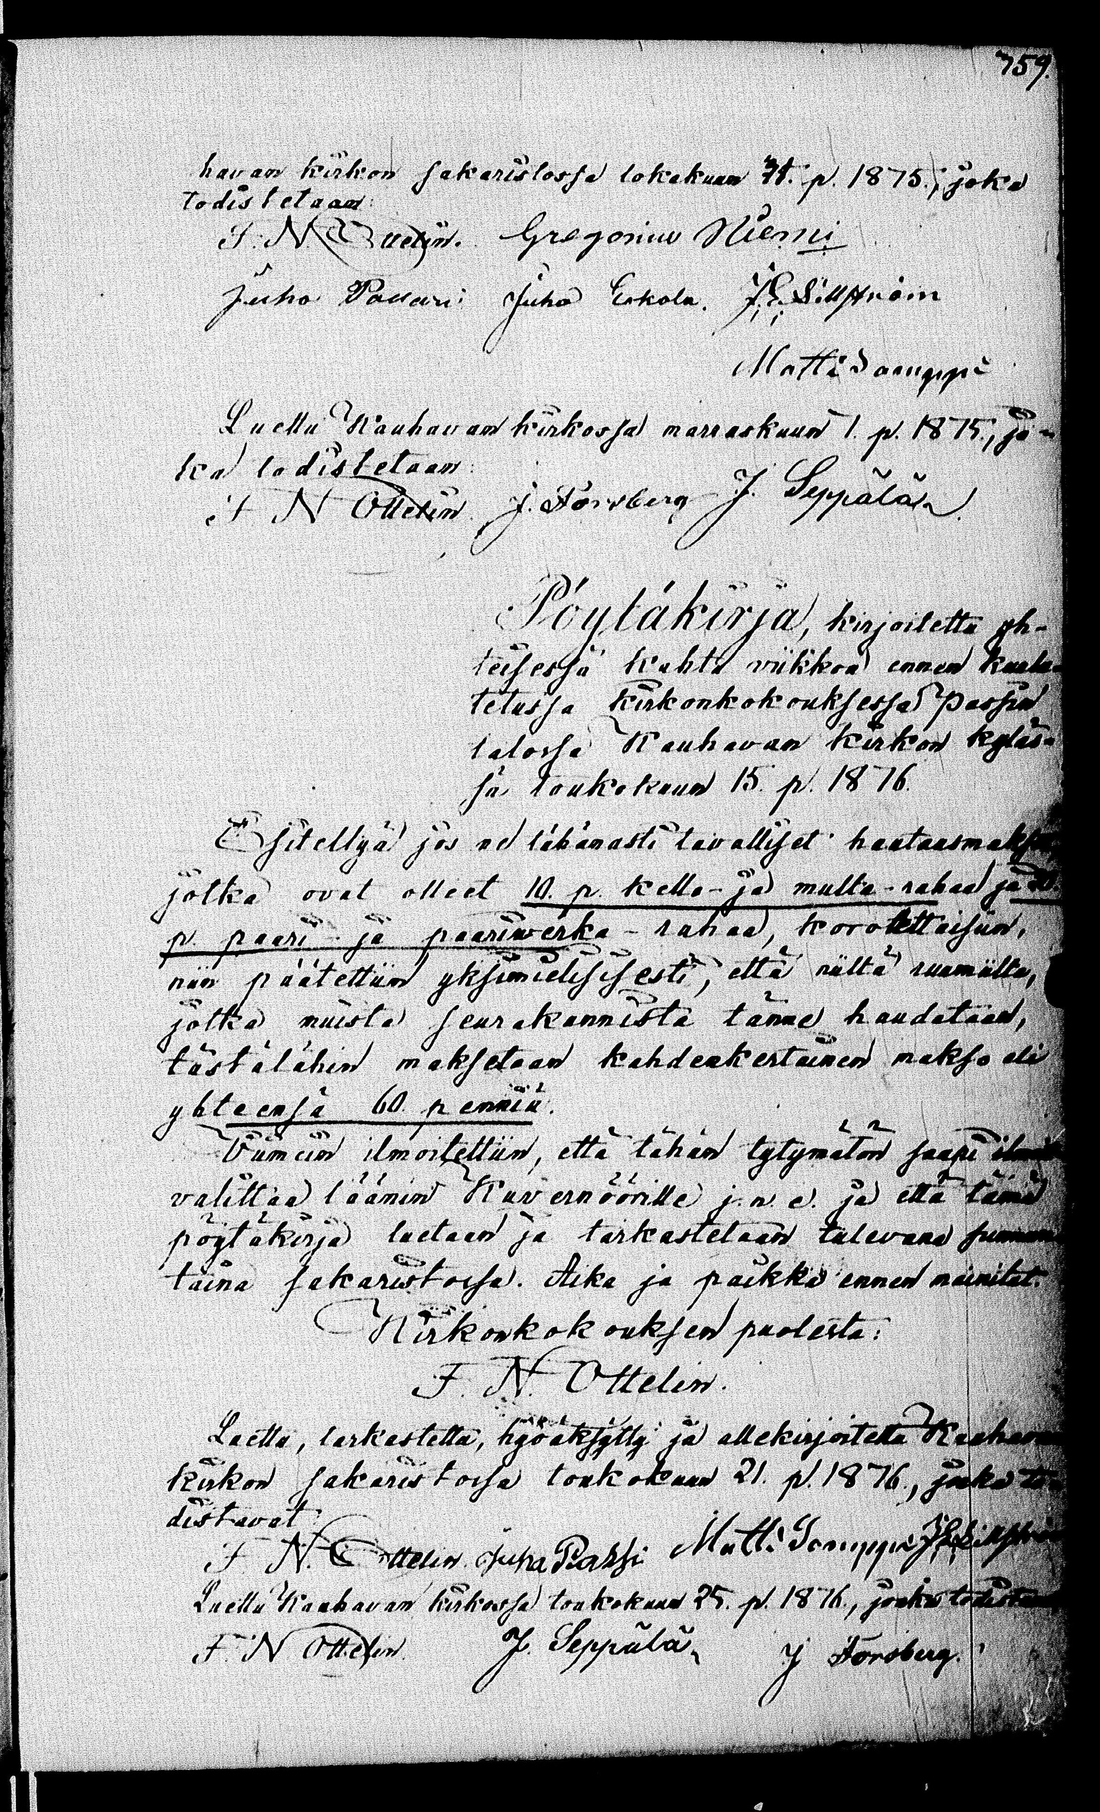 759.
havan kirkon sakaristossa lokakuun 31. p. 1875., joka
todistetaan:
F. N. Ottelin. Gregorius Niemi
Juho Passari Juho Eskola. J. E. Sillström
Matti Samppi
Luettu Kauhavan kirkossa marraskuun 1. p. 1875., jo-
ka todistetaan:
F N Ottelin J. Forsberg J. Seppälä
Pöytäkirja, kirjoitettu yh-
teisessä kahta viikkoa ennen kuulu-
tetussa kirkonkokouksessa Passin
talossa Kauhavan kirkon kyläs-
sä toukokuun 15. p. 1876.
Esitellyä jos ne tähänasti tavalliset hautausmaksut,
jotka ovat olleet 10. p. kello- ja multa-rahaa ja 20.
p. paari- ja paariwerka-rahaa, korotettaisiin,
niin päätettiin yksimielisisesti, että niiltä ruumiilta,
jotka muista seurakunnista tänne haudataan,
tästälähin maksetaan kahdenkertainen makso eli
yhteensä 60. penniä.
Viimein ilmoitettiin, että tähän tytymätön saapi
valittaa läänin Kuvernöörille j. n. e. ja että tämä
pöytäkirja luetaan ja tarkastetaan tulevana sunnun-
taina sakaristossa. Aika ja paikka ennen mainitut.
Kirkonkokouksen puolesta:
F. N. Ottelin.
Luettu, tarkastettu, hyväksytty ja allekirjoitettu Kauhavan
kirkon sakaristossa toukokuun 21. p. 1876., jonka to-
distavat:
F. N. Ottelin Juha Passi Matti Samppi J. E. Sillström
Luettu Kauhavan kirkossa toukokuun 25. p. 1876., jonka todistavat
F. N Ottelin. J. Seppälä J Forsberg.